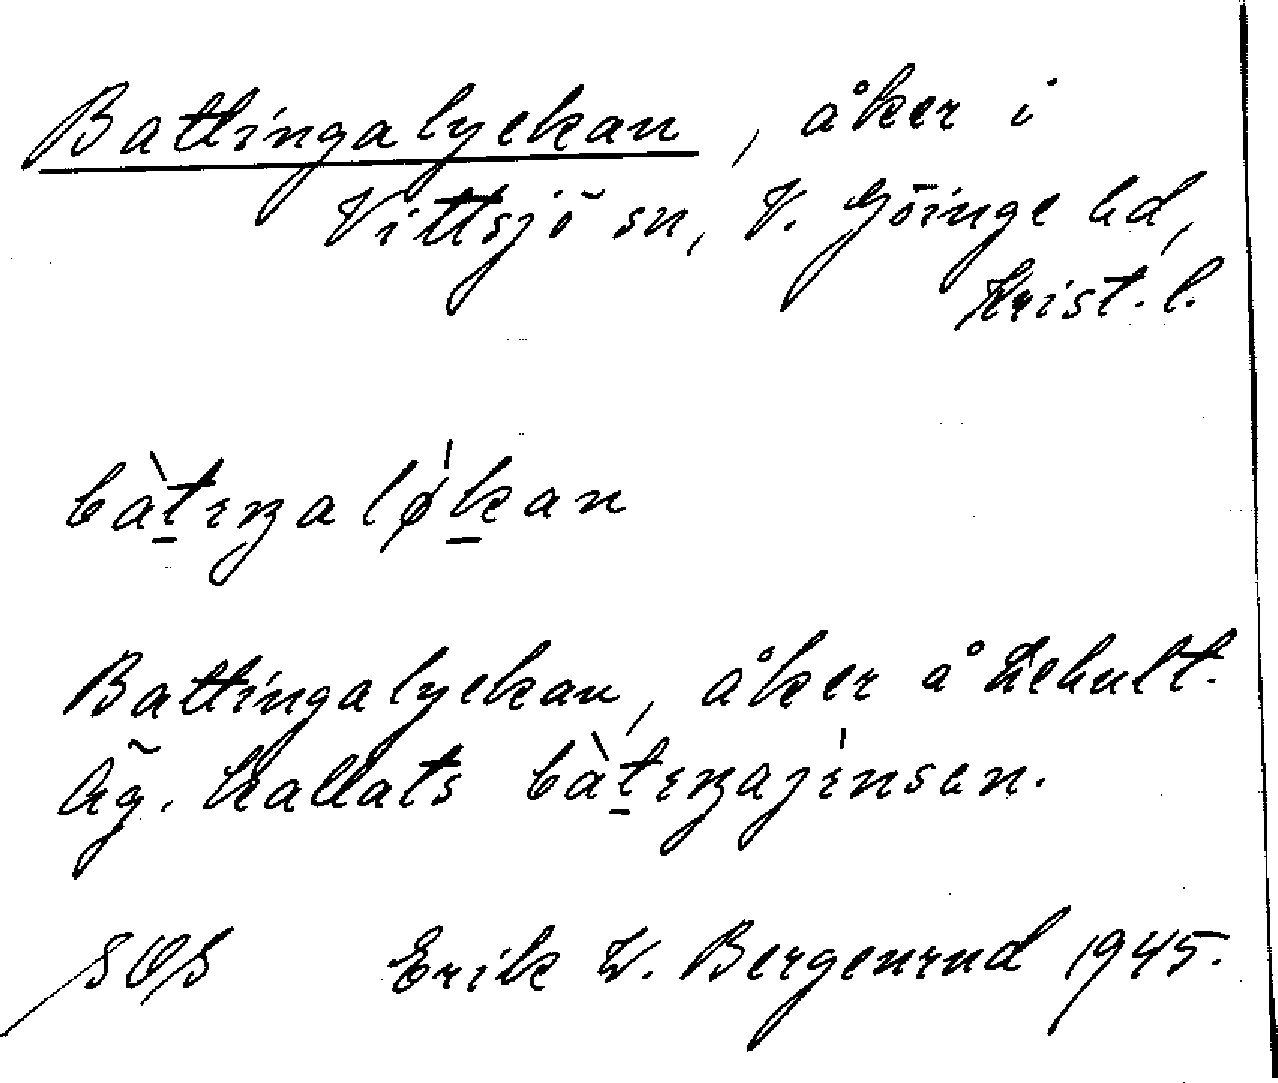 Battingalyckan, åker i
Vittsjö sn, V. Göinge hd,
Krist. l.
bàt̠ıŋalø̍k̠an
Battingalyckan, åker å Lehult.
Äg. kallats bàt̠ıŋajı̍nsen.
SOS Erik W. Bergenrud 1945.